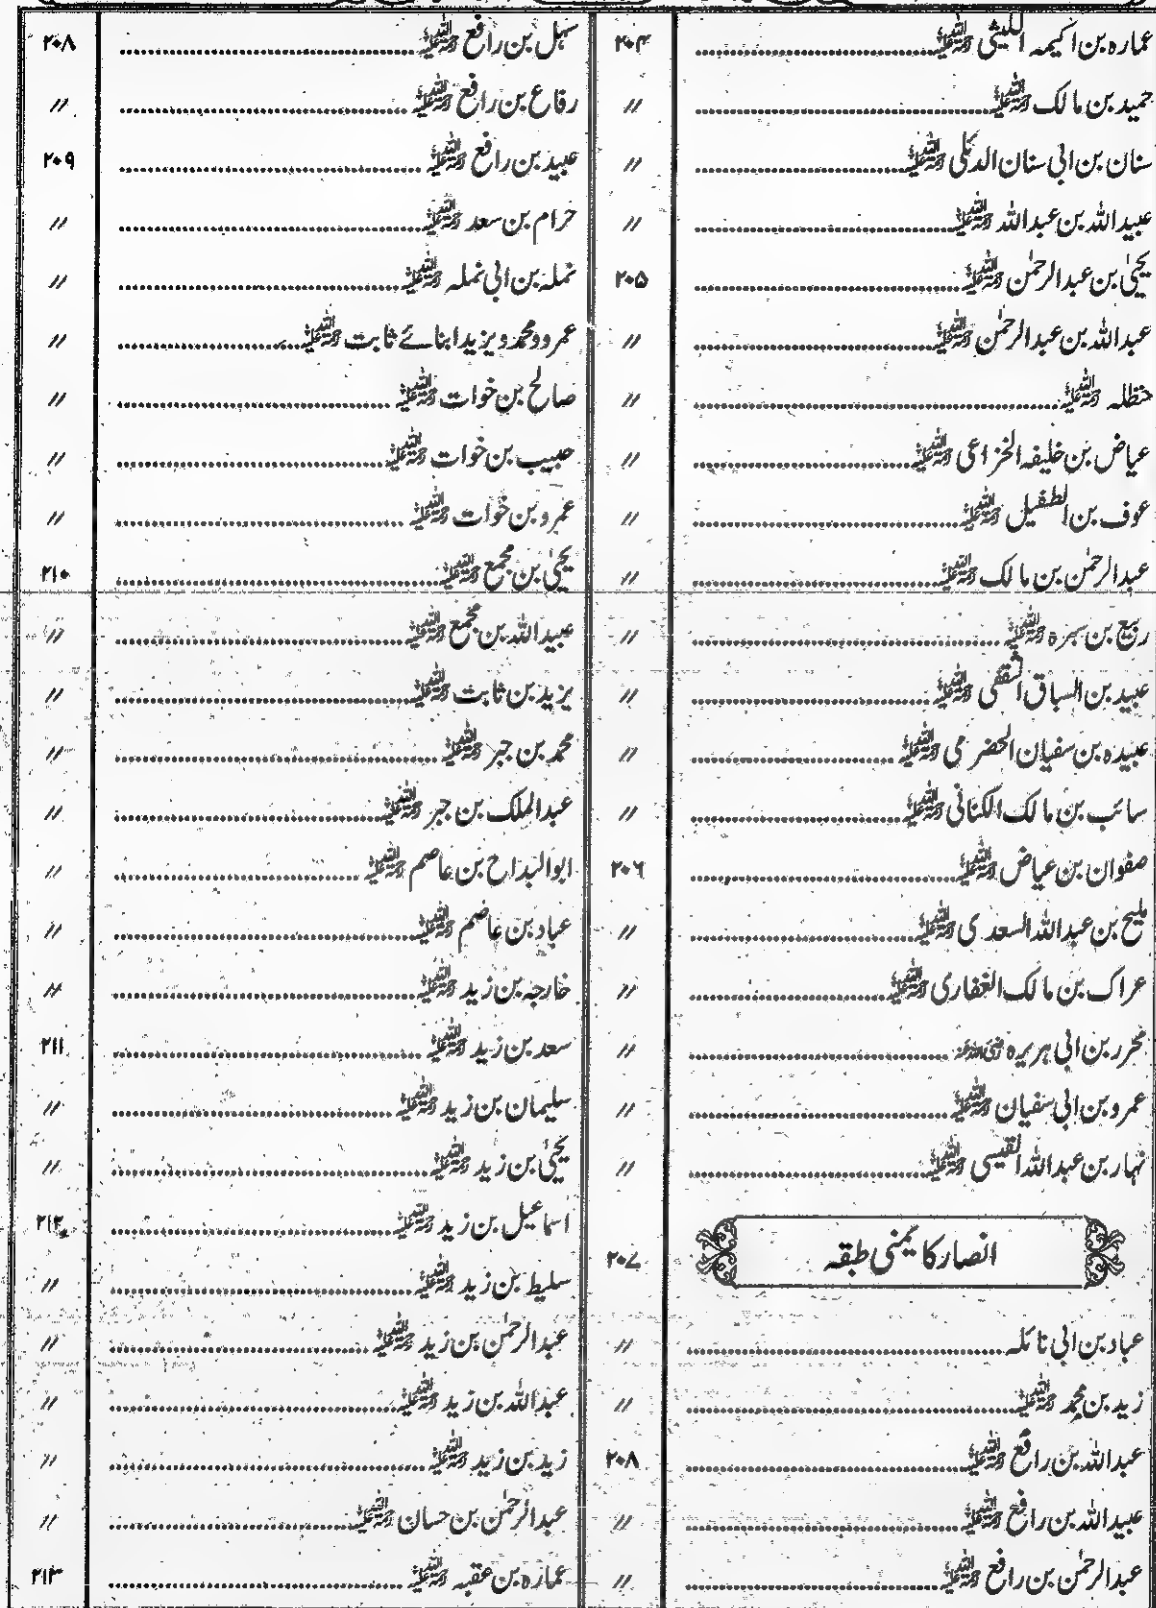 عمارہ بن اکیمہ اللیثی رحمۃ اللہ علیہ ۲۰۴
حمید بن مالک رحمۃ اللہ علیہ //
سنان بن ابی سنان الدئلی رحمۃ اللہ علیہ //
عبیداللہ بن عبداللہ رحمۃ اللہ علیہ //
یحییٰ بن عبدالرحمٰن رحمۃ اللہ علیہ ۲۰۵
عبداللہ بن عبدالرحمٰن رحمۃ اللہ علیہ //
حنظلہ رحمۃ اللہ علیہ //
عیاض بن خلیفہ الخزاعی رحمۃ اللہ علیہ //
عوف بن الطفیل رحمۃ اللہ علیہ //
عبدالرحمٰن بن مالک رحمۃ اللہ علیہ //
ربیع بن سبرہ رحمۃ اللہ علیہ //
عبید بن السباق الثقفی رحمۃ اللہ علیہ //
عبیدہ بن سفیان الحضرمی رحمۃ اللہ علیہ //
سائب بن مالک الکنانی رحمۃ اللہ علیہ //
صفوان بن عیاض رحمۃ اللہ علیہ ۲۰۶
ملیح بن عبداللہ السعدی رحمۃ اللہ علیہ //
عراک بن مالک الغفاری رحمۃ اللہ علیہ //
محرر بن ابی ہریرہ رضی اللہ عنہ //
عمرو بن ابی سفیان رحمۃ اللہ علیہ //
نہار بن عبداللہ القیسی رحمۃ اللہ علیہ //
انصار کا یمنی طبقہ ۲۰۷
عباد بن ابی نائلہ //
زید بن محمد رحمۃ اللہ علیہ //
عبداللہ بن رافع رحمۃ اللہ علیہ ۲۰۸
عبیداللہ بن رافع رحمۃ اللہ علیہ //
عبدالرحمٰن بن رافع رحمۃ اللہ علیہ //
سہل بن رافع رحمۃ اللہ علیہ ۲۰۸
رفاع بن رافع رحمۃ اللہ علیہ //
عبید بن رافع رحمۃ اللہ علیہ ۲۰۹
حرام بن سعد رحمۃ اللہ علیہ //
نملہ بن ابی نملہ رحمۃ اللہ علیہ //
عمرو و محمد و یزید ابنائے ثابت رحمۃ اللہ علیہ //
صالح بن خوات رحمۃ اللہ علیہ //
حبیب بن خوات رحمۃ اللہ علیہ //
عمرو بن خوات رحمۃ اللہ علیہ //
یحییٰ بن مجمع رحمۃ اللہ علیہ ۲۱۰
عبیداللہ بن مجمع رحمۃ اللہ علیہ //
یزید بن ثابت رحمۃ اللہ علیہ //
محمد بن جبر رحمۃ اللہ علیہ //
عبدالملک بن جبر رحمۃ اللہ علیہ //
ابوالبداح بن عاصم رحمۃ اللہ علیہ //
عباد بن عاصم رحمۃ اللہ علیہ //
خارجہ بن زید رحمۃ اللہ علیہ //
سعد بن زید رحمۃ اللہ علیہ ۲۱۱
سلیمان بن زید رحمۃ اللہ علیہ //
یحییٰ بن زید رحمۃ اللہ علیہ //
اسماعیل بن زید رحمۃ اللہ علیہ ۲۱۲
سلیط بن زید رحمۃ اللہ علیہ //
عبدالرحمٰن بن زید رحمۃ اللہ علیہ //
عبداللہ بن زید رحمۃ اللہ علیہ //
زید بن زید رحمۃ اللہ علیہ //
عبدالرحمٰن بن حسان رحمۃ اللہ علیہ //
عمارہ بن عقبہ رحمۃ اللہ علیہ ۲۱۳